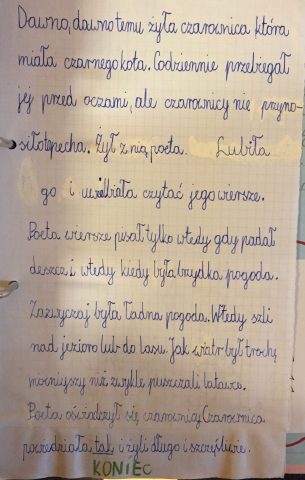 Dawno, dawno temu żyła czarownica która
miała czarnego kota. Codziennie przebiegał
jej przed oczami, ale czarownicy nie przyno-
siło to pecha. Żył z nią poeta. Lubiła
go i uwielbiała czytać jego wiersze.
Poeta wiersze pisał tylko wtedy gdy padał
deszcz i wtedy kiedy była brzydka pogoda.
Zazwyczaj była ładna pogoda. Wtedy szli
nad jezioro lub do lasu. Jak wiatr był trochę
mocniejszy niż zwykle puszczali latawce.
Poeta oświadczył się czarownicy. Czarownica
powiedziała tak i żyli długo i szczęśliwie.
KONIEC